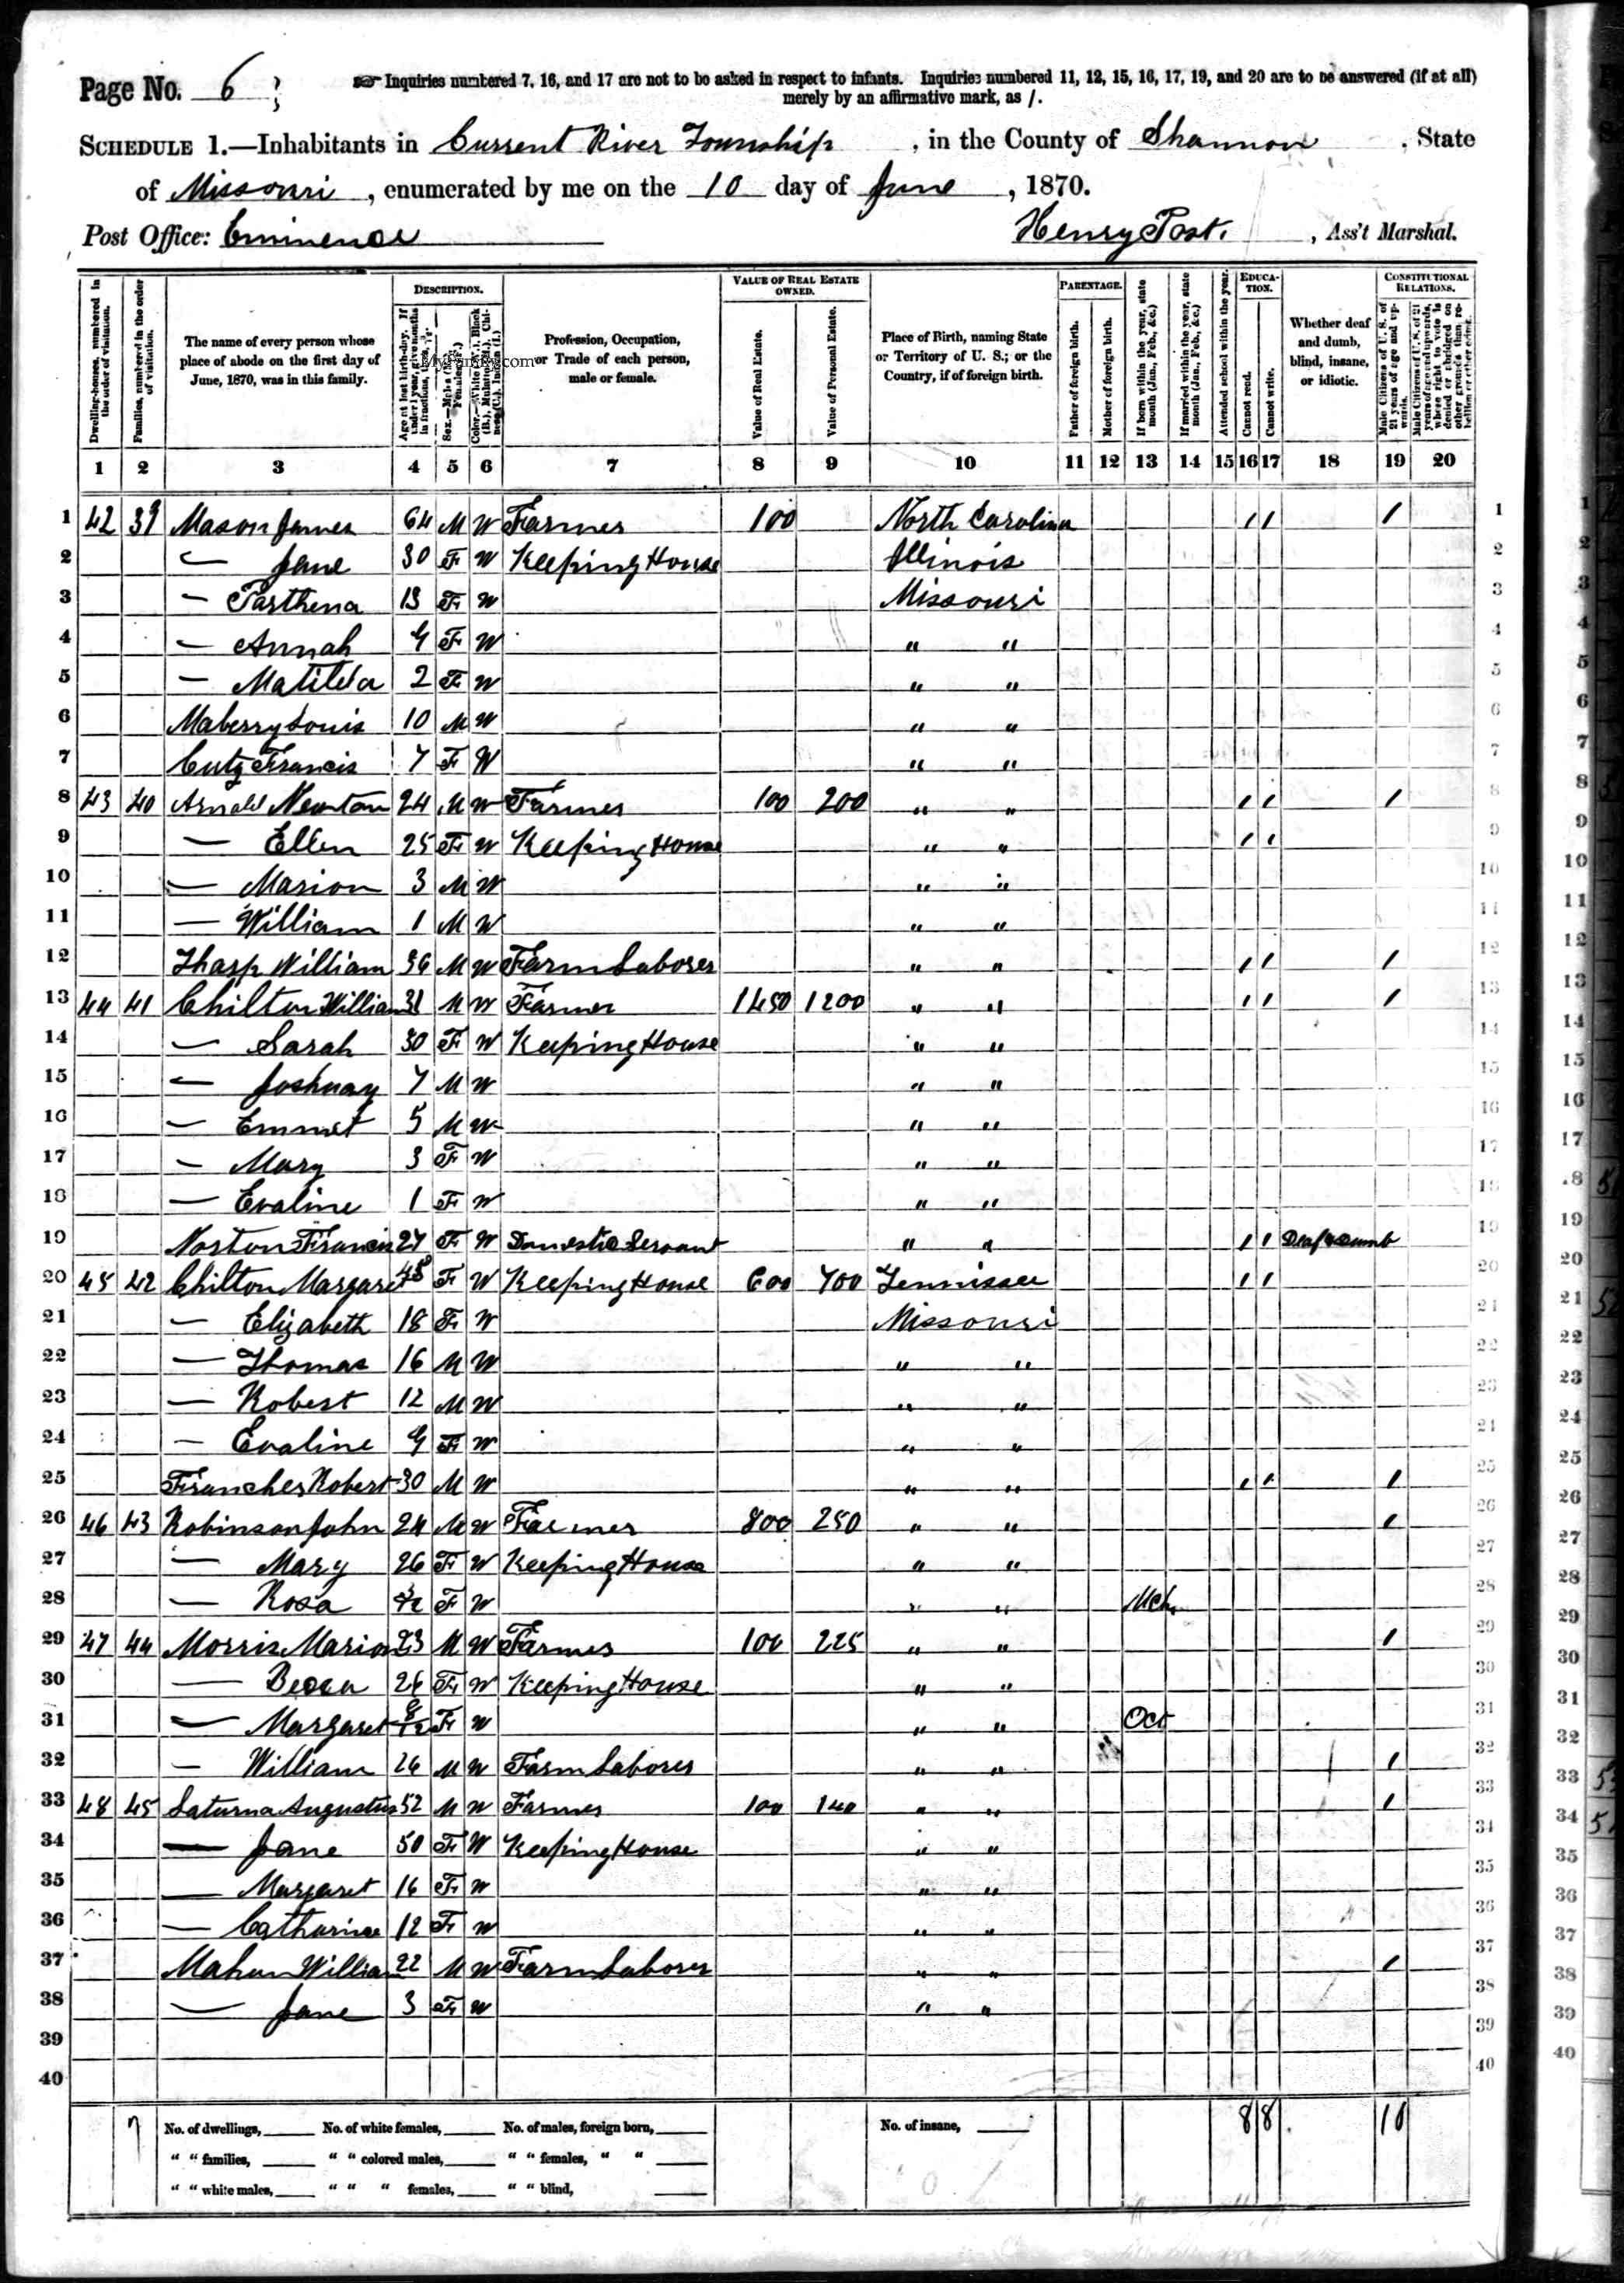 Page No. 6
Inquiries numbered 7, 16, and 17 are not to be asked in respect to infants. Inquiries numbered 11, 12, 15, 16, 17, 19, and 20 are to be answered (if at all)
merely by an affirmative mark, as /.
SCHEDULE 1.—Inhabitants in Current River Township, in the County of Shannon, State
of Missouri, enumerated by me on the 10 day of June, 1870.
Post Office: Eminence Henry Post, Ass't Marshal.
Dwelling-houses, numbered in the order of visitation.
Families, numbered in the order of visitation.
The name of every person whose place of abode on the first day of June, 1870, was in this family.
DESCRIPTION.
Age at last birth-day. If under 1 year, give months in fractions, thus,
Sex.—Males (M.), Females (F.)
Color.—White (W.), Black (B.), Mulatto (M.), Chinese (C.), Indian (I.)
MyFamily.com
Profession, Occupation, or Trade of each person, male or female.
VALUE OF REAL ESTATE OWNED.
Value of Real Estate.
Value of Personal Estate.
Place of Birth, naming State or Territory of U. S.; or the Country, if of foreign birth.
PARENTAGE.
Father of foreign birth.
Mother of foreign birth.
If born within the year, state month (Jan., Feb., &c.)
If married within the year, state month (Jan., Feb., &c.)
Attended school within the year.
EDUCATION.
Cannot read.
Cannot write.
Whether deaf and dumb, blind, insane, or idiotic.
CONSTITUTIONAL RELATIONS.
Male Citizens of U. S. of 21 years of age and upwards.
Male Citizens of U. S. of 21 years of age and upwards, whose right to vote is denied or abridged on other grounds than rebellion or other crime.
1 2 3 4 5 6 7 8 9 10 11 12 13 14 15 16 17 18 19 20
1 42 39 Mason James 64 M W Farmer 100 North Carolina / / / 1
2 — Jane 30 F W Keeping House Illinois 2
3 — Parthena 13 F W Missouri 3
4 — Annah 9 F W " " 4
5 — Matilda 2 F W " " 5
6 Maberry Louis 10 M W " " 6
7 Francis 7 F W " " 7
8 43 40 Arnold Newton 24 M W Farmer 100 200 " " / / / 8
9 — Ellen 25 F W Keeping House " " / / 9
10 — Marion 3 M W " " 10
11 — William 1 M W " " 11
12 Tharp William 36 M W Farm Laborer " " / / / 12
13 44 41 Chilton William 31 M W Farmer 1450 1200 " " / / / 13
14 — Sarah 30 F W Keeping House " " 14
15 — Joshuay 7 M W " " 15
16 — Emmet 5 M W " " 16
17 — Mary 3 F W " " 17
18 — Evaline 1 F W " " 18
19 Norton Francis 27 F W Domestic Servant " " / / Deaf & dumb 19
20 45 42 Chilton Margaret 48 F W Keeping House 600 700 Tennissee / / 20
21 — Elizabeth 18 F W Missouri 21
22 — Thomas 16 M W " " 22
23 — Robert 12 M W " " 23
24 — Evaline 9 F W " " 24
25 Francher Robert 30 M W " " / / / 25
26 46 43 Robinson John 24 M W Farmer 800 250 " " / 26
27 — Mary 26 F W Keeping House " " 27
28 — Rosa F W " " Mch. 28
29 47 44 Morris Marion 23 M W Farmer 100 225 " " / 29
30 — Becca 26 F W Keeping House " " 30
31 — Margaret 8/12 F W " " Oct 31
32 — William 26 M W Farm Laborer " " / 32
33 48 45 Saturna Augustus 52 M W Farmer 100 140 " " / 33
34 — Jane 50 F W Keeping House " " 34
35 — Margaret 16 F W " " 35
36 — Catharine 12 F W " " 36
37 Mahan William 22 M W Farm Laborer " " / 37
38 — Jane 3 F W " " 38
39 39
40 40
7 No. of dwellings, No. of white females, No. of males, foreign born, No. of insane, 8 8 10
" " families, " " colored males, " " females, " "
" " white males, " " " females, " " blind,